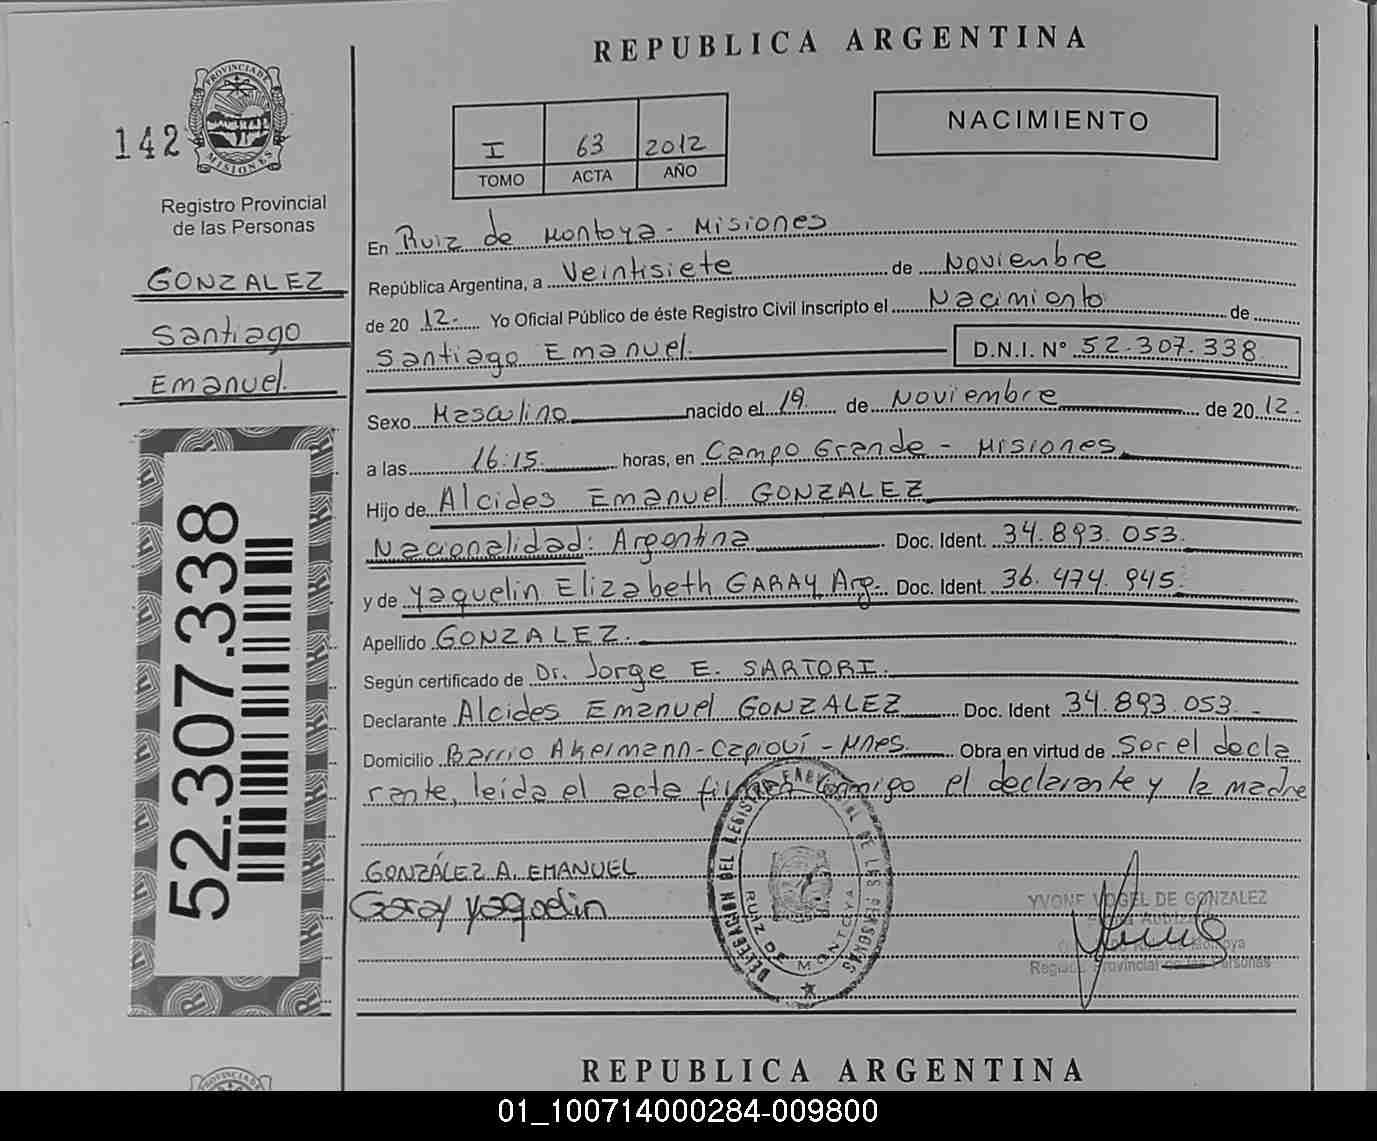 REPUBLICA ARGENTINA
142
PROVINCIA DE MISIONES
Registro Provincial
de las Personas
GONZALEZ
Santiago
Emanuel.
52.307.338
I 63 2012
TOMO ACTA AÑO
NACIMIENTO
En Ruiz de Montoya - Misiones
República Argentina, a Veintisiete de Noviembre
de 20 12.- Yo Oficial Público de éste Registro Civil inscripto el Nacimiento de
Santiago Emanuel. D.N.I. N° 52.307.338
Sexo Masculino nacido el 19 de Noviembre de 20 12.
a las 16:15 horas, en Campo Grande - Misiones
Hijo de Alcides Emanuel GONZALEZ
Nacionalidad: Argentina Doc. Ident. 34.893.053.
y de Yaquelin Elizabeth GARAY, Arg. Doc. Ident. 36.474.945.
Apellido GONZALEZ.
Según certificado de Dr. Jorge E. SARTORI.
Declarante Alcides Emanuel GONZALEZ Doc. Ident 34.893.053.-
Domicilio Barrio Akermann-Capioví-Mnes. Obra en virtud de Ser el decla
rante, leída el acta conmigo el declarante y la madre
GONZÁLEZ A. EMANUEL
Garay Yaquelin
DELEGACION DEL REGISTRO PROVINCIAL DE LAS PERSONAS
RUIZ DE MONTOYA
YVONE VOGEL DE GONZALEZ
Registro Provincial de las Personas
PROVINCIA DE
REPUBLICA ARGENTINA
01_100714000284-009800